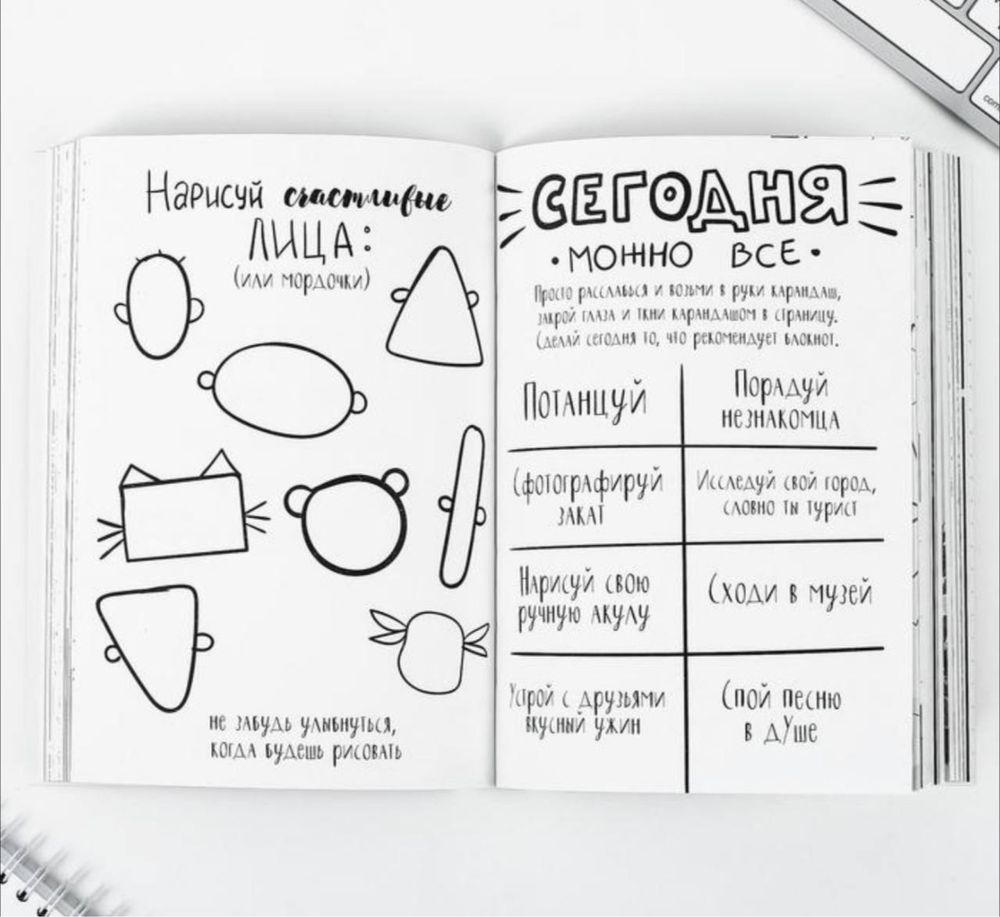 Нарисуй счастливые
ЛИЦА:
(или мордочки)
не забудь улыбнуться,
когда будешь рисовать
СЕГОДНЯ
• МОЖНО ВСЕ •
Просто расслабься и возьми в руки карандаш,
закрой глаза и ткни карандашом в страницу.
Сделай сегодня то, что рекомендует блокнот.
Потанцуй
Порадуй
незнакомца
Сфотографируй
закат
Исследуй свой город,
словно ты турист
Нарисуй свою
ручную акулу
Сходи в музей
Устрой с друзьями
вкусный ужин
Спой песню
в дУше